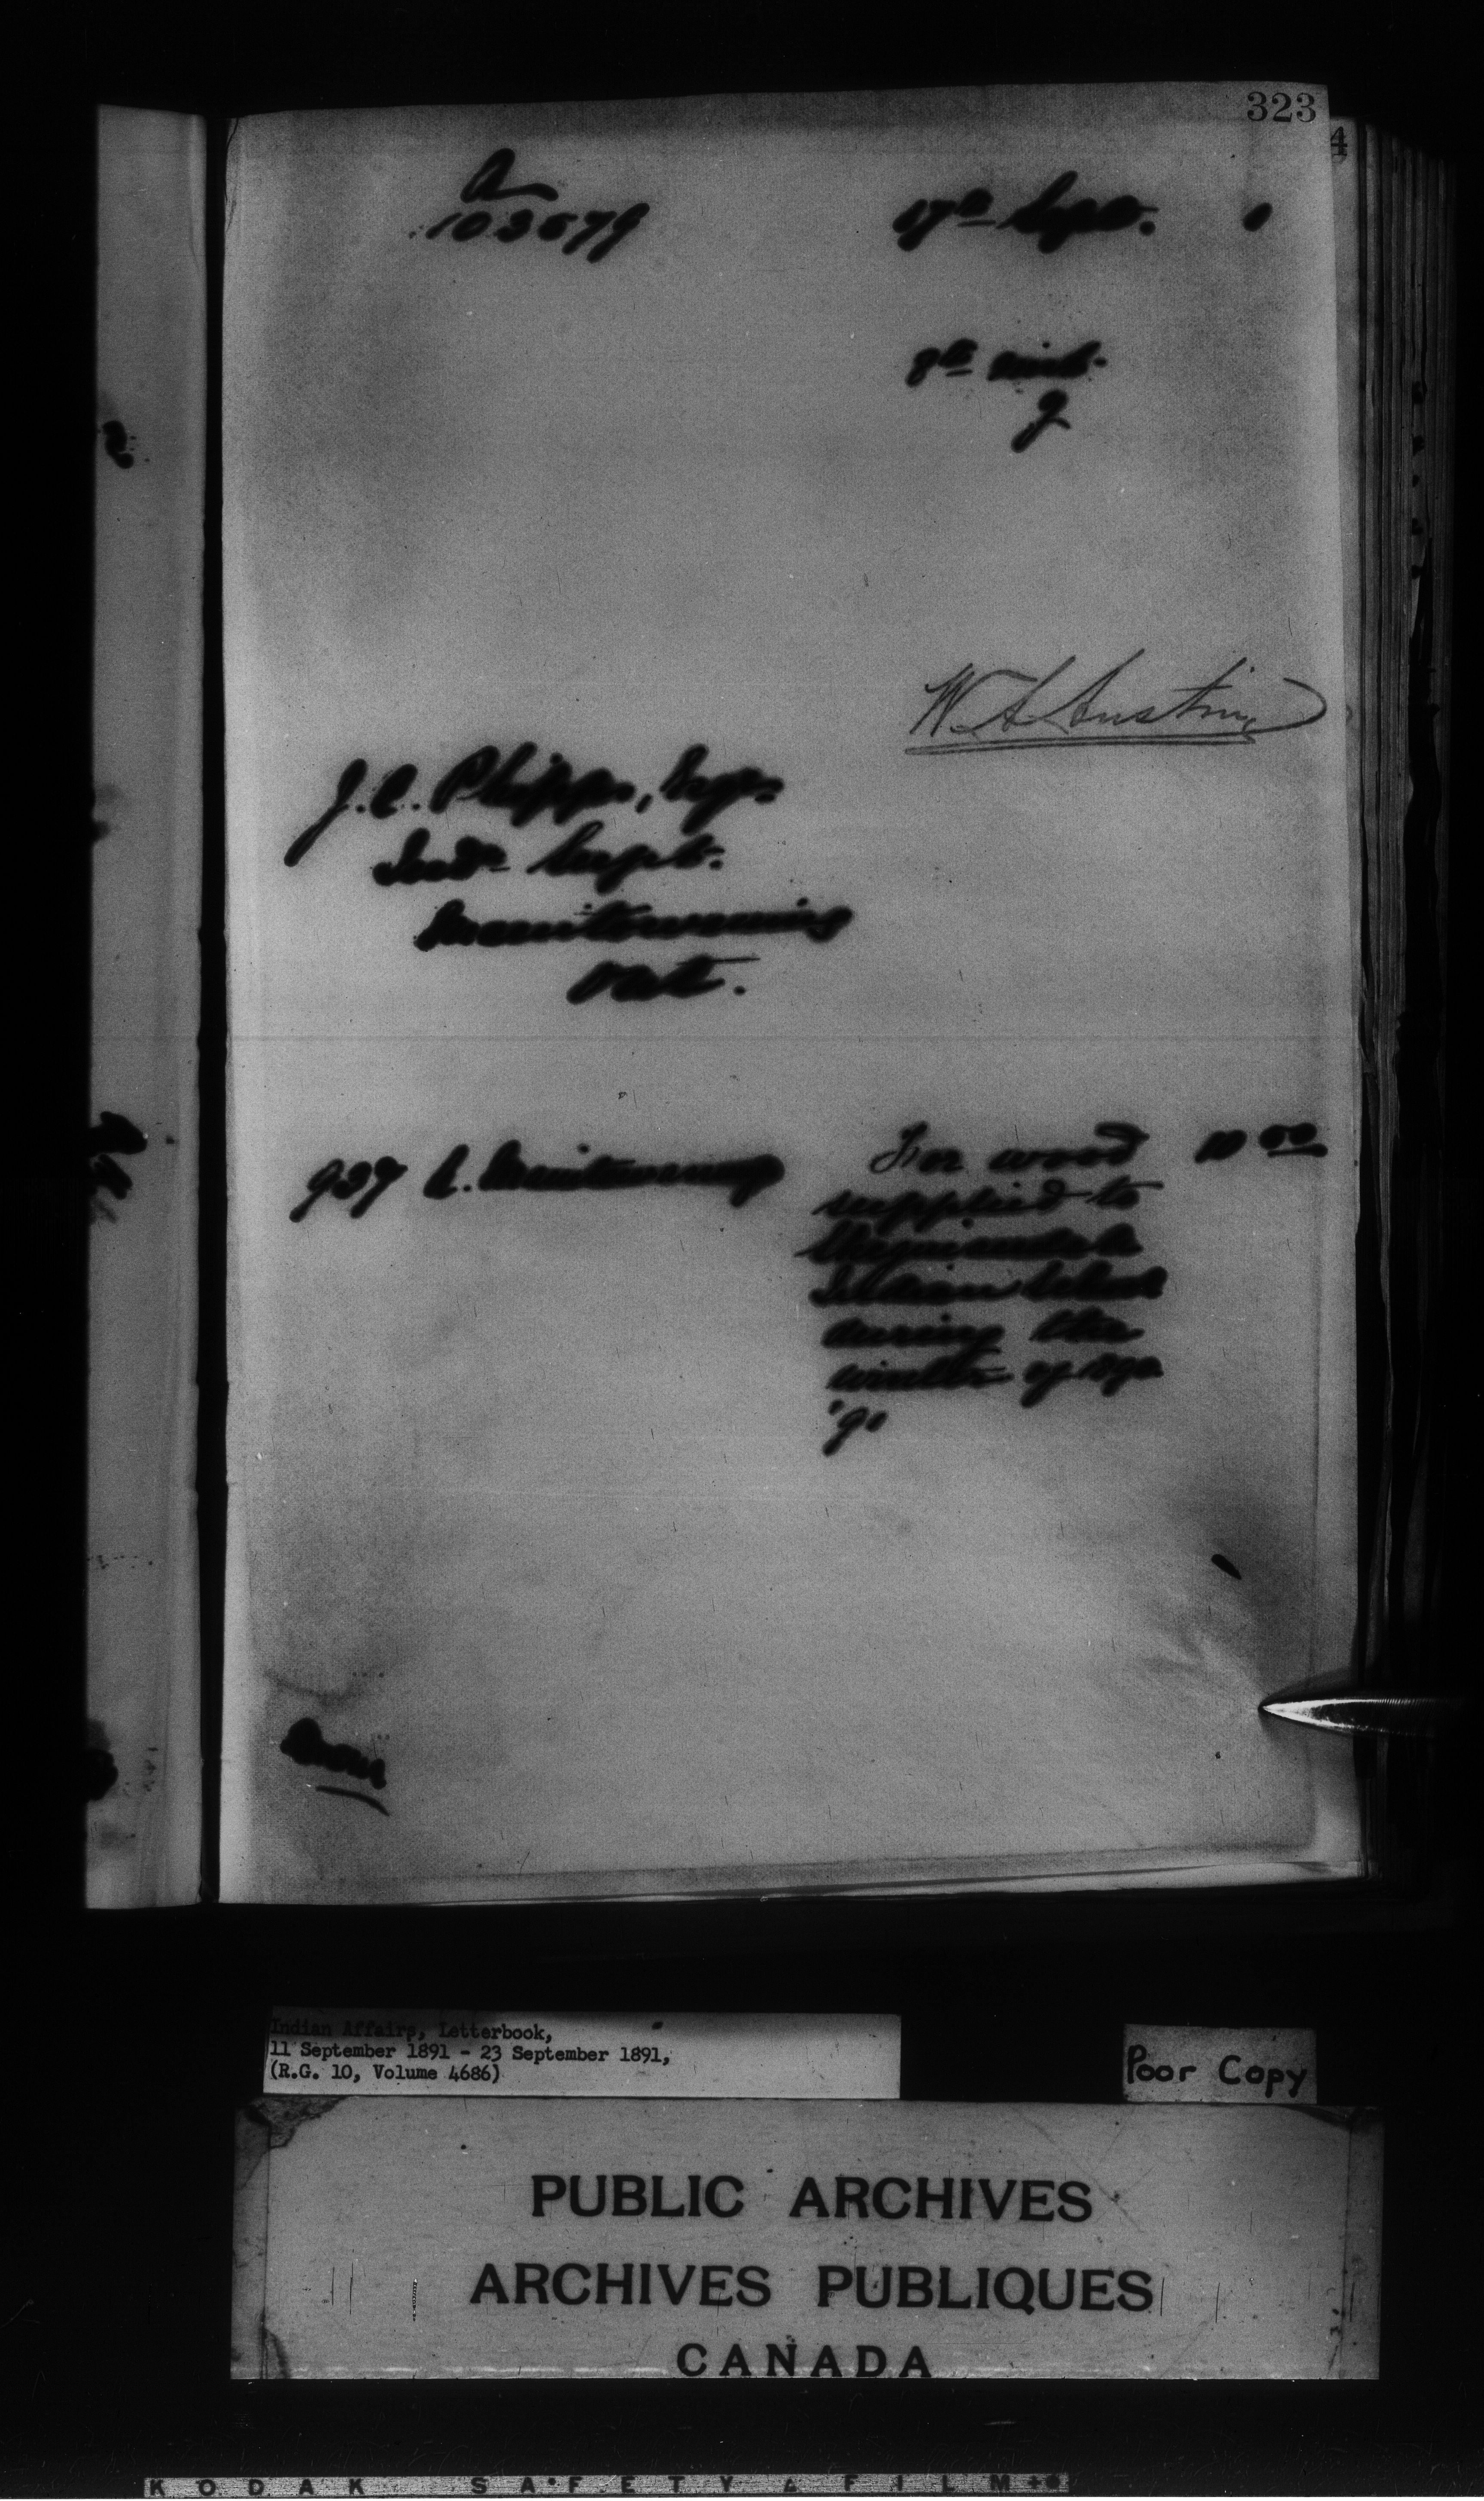 323
4
A
103579
17th Sept. 1
8th inst.
9
W. A. Austin
J. C. Phipps, Esqr.
Ind. Supt.
Manitowaning
Ont.
937 A. Manitowaning For wood 10 00
supplied to
Sheguiandah
Indian School
during the
winter of 90
'91
Indian Affairs, Letterbook,
11 September 1891 - 23 September 1891,
(R.G. 10, Volume 4686)
Poor Copy
PUBLIC ARCHIVES
ARCHIVES PUBLIQUES
CANADA
KODAK SAFETY FILM